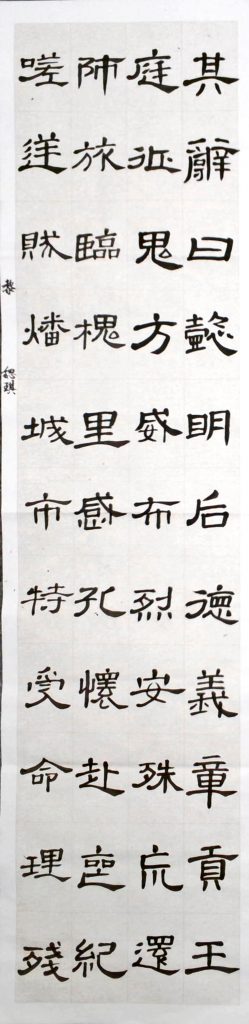 其辭曰懿明后德義章貢王
庭征鬼方威布烈安殊巟還
師旅臨槐里感孔懷赴喪紀
嗟逆賊燔城市特受命理殘